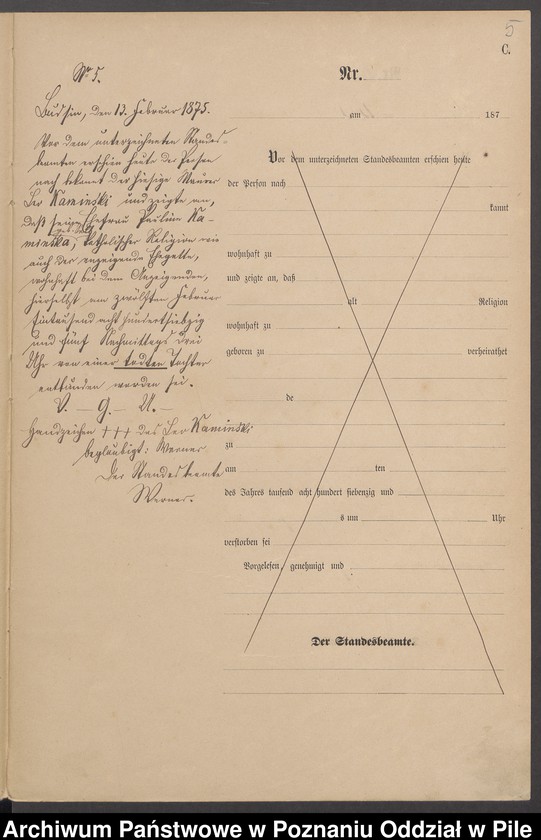 5
C.
No 5.
Budsin, den 13. Februar 1875.
Vor dem unterzeichneten Standes-
beamten erschien heute der Person
nach bekannt der hiesige Maurer
Kaminski und zeigte an,
daß seine Ehefrau Pauline Ka-
minska, katholischer Religion wie
auch der anzeigende Ehegatte,
wohnhaft bei dem Anzeigenden,
hierselbst am zwölften Februar
Eintausend acht hundert siebzig
und fünf Nachmittags drei
Uhr von einer todten Tochter
entbunden worden sei.
V. G. U.
Handzeichen +++ des Kaminski
beglaubigt: Werner
Der Standesbeamte
Werner.
Nr.
am 187
Vor dem unterzeichneten Standesbeamten erschien heute
der Person nach
kannt
wohnhaft zu
und zeigte an, daß
alt Religion
wohnhaft zu
geboren zu verheirathet
de
zu
am ten
des Jahres tausend acht hundert siebenzig und
s um Uhr
verstorben sei
Vorgelesen, genehmigt und
Der Standesbeamte.
Archiwum Państwowe w Poznaniu Oddział w Pile